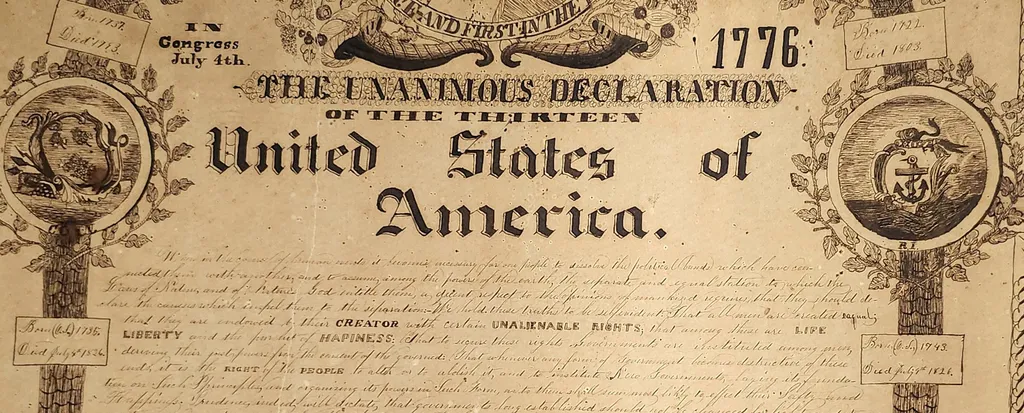 CE AND FIRST IN THE
Born 1732.
Died 1799.
IN
Congress
July 4th.
1776.
Born 1722.
Died 1803.
THE UNANIMOUS DECLARATION
OF THE THIRTEEN
United States of
America.
When in the course of human it becomes necessary for one people to dissolve the political Bands which have con
nected them with another, and to assume, among the powers of the earth, the separate and equal station to which the
of Nature, and of Nature's God intitle them, a decent respect to the opinions of mankind requires, that they should de
clare the causes which impel them to the separation. We hold these truths to be selfevident: That all men are created equal;
that they are endowed by their CREATOR with certain UNALIENABLE RIGHTS; that among these are LIFE
LIBERTY and the pursuit of HAPINESS; That to secure these rights Governments are instituted among men,
deriving their just powers from the consent of the governed; That whenever any form of Government becomes distructive of these
ends, it is the RIGHT of the PEOPLE to alter or to abolish it, and to institute New Government, laying its founda
tion on Such Principles, and organizing its powers in Such form, as to them shall seem most likely to effect their Safty and
Happiness. Prudence, indeed, will dictate, that governments long established should not be changed for light
RI
Born (O.S.) 1735.
Died July 4th 1826.
Born (O.S.) 1743.
Died July 4th 1826.